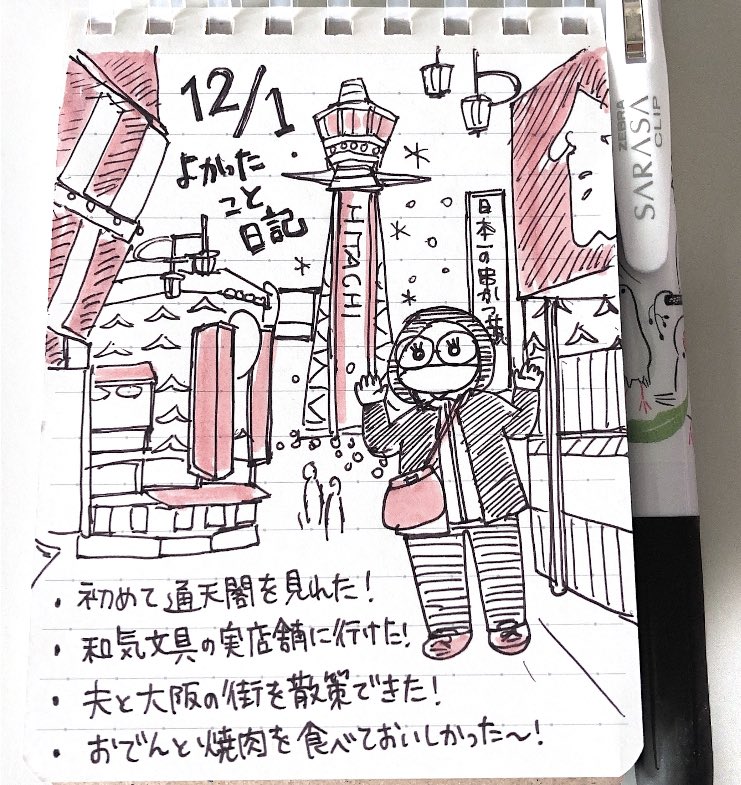 12/1
よかった
こと
日記
HITACHI
日本一の串かつ
・初めて通天閣を見れた!
・和気文具の実店舗に行けた!
・夫と大阪の街を散策できた!
・おでんと焼肉を食べておいしかった〜!
ZEBRA
SARASA
CLIP